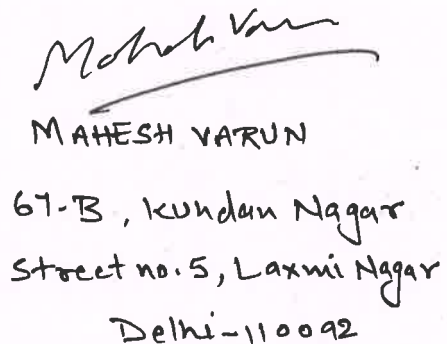 Mahesh Varun
MAHESH VARUN
67-B, Kundan Nagar
Street no. 5, Laxmi Nagar
Delhi-110092